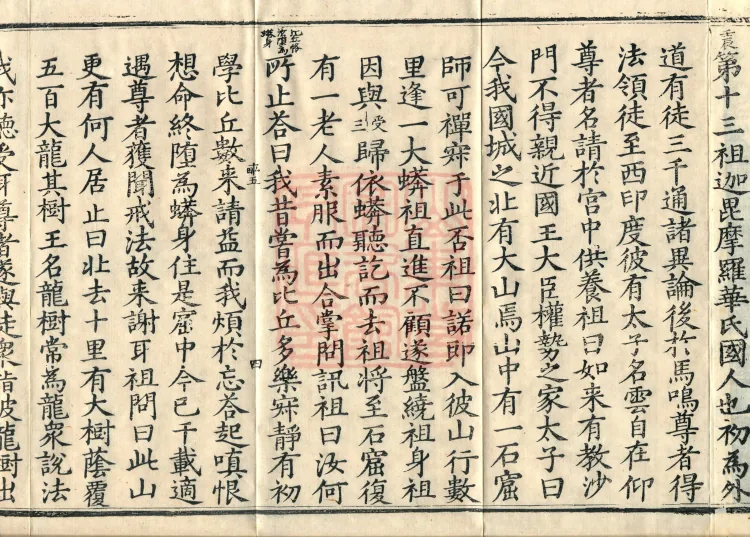 第十三祖迦毘摩羅華氏國人也初為外
道有徒三千通諸異論後於馬鳴尊者得
法領徒至西印度彼有太子名雲自在仰
尊者名請於宮中供養祖曰如来有教沙
門不得親近國王大臣權勢之家太子曰
今我國城之北有大山焉山中有一石窟
師可禪㝥于此否祖曰諾即入彼山行數
里逢一大蟒祖直進不顧遂盤繞祖身祖
因與受三歸依蟒聽訖而去祖将至石窟復
有一老人素服而出合掌問訊祖曰汝何
所止荅曰我昔嘗為比丘多樂㝥靜有初
學比丘數来請益而我煩於應荅起嗔恨
想命終墮為蟒身住是窟中今已千載適
遇尊者獲聞戒法故来謝耳祖問曰此山
更有何人居止曰北去十里有大樹蔭覆
五百大龍其樹王名龍樹常為龍衆說法
我亦聽受耳尊者遂與徒衆詣彼龍樹出
四